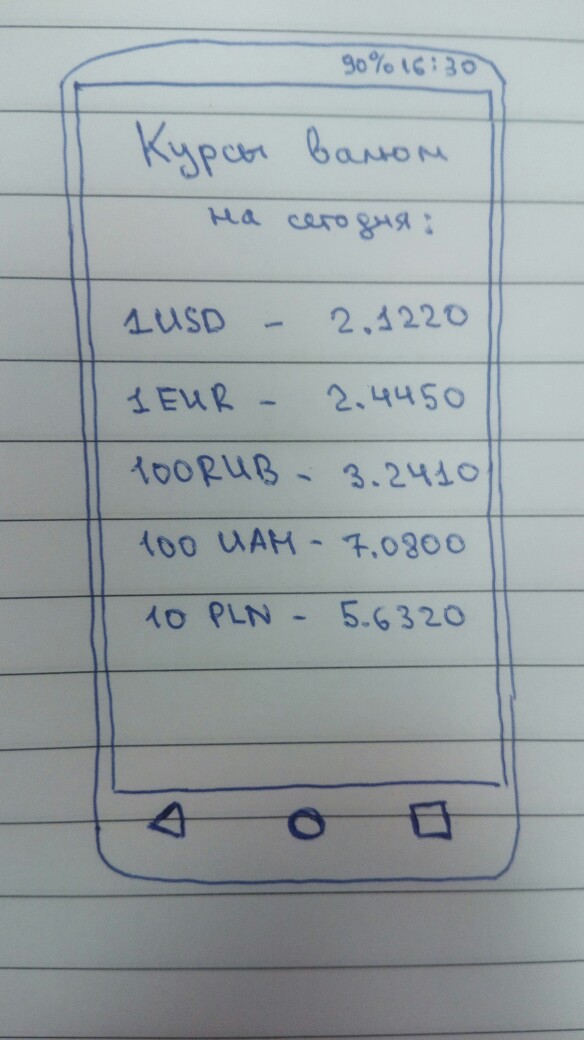 90% 16:30
Курсы валют
на сегодня:
1USD - 2.1220
1EUR - 2.4450
100RUB - 3.2410
100 UAH - 7.0800
10 PLN - 5.6320